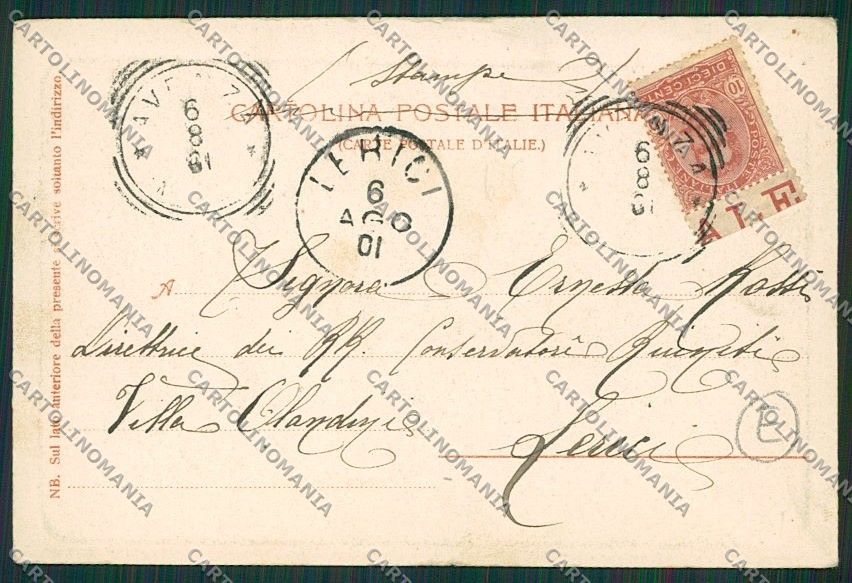 Stampe
CARTOLINA POSTALE ITALIANA
(CARTE POSTALE D'ITALIE.)
AVENZA
6
8
01
LERICI
6
AGO
01
AVENZA
6
8
01
POSTE ITALIANE
DIECI CENT
10
ALE
A Signora Ernesta Rossi
Direttrice dei RR. Conservatori Riuniti
Villa Olandini
Lerici
NB. Sul lato anteriore della presente si scrive soltanto l'indirizzo.
CARTOLINOMANIA